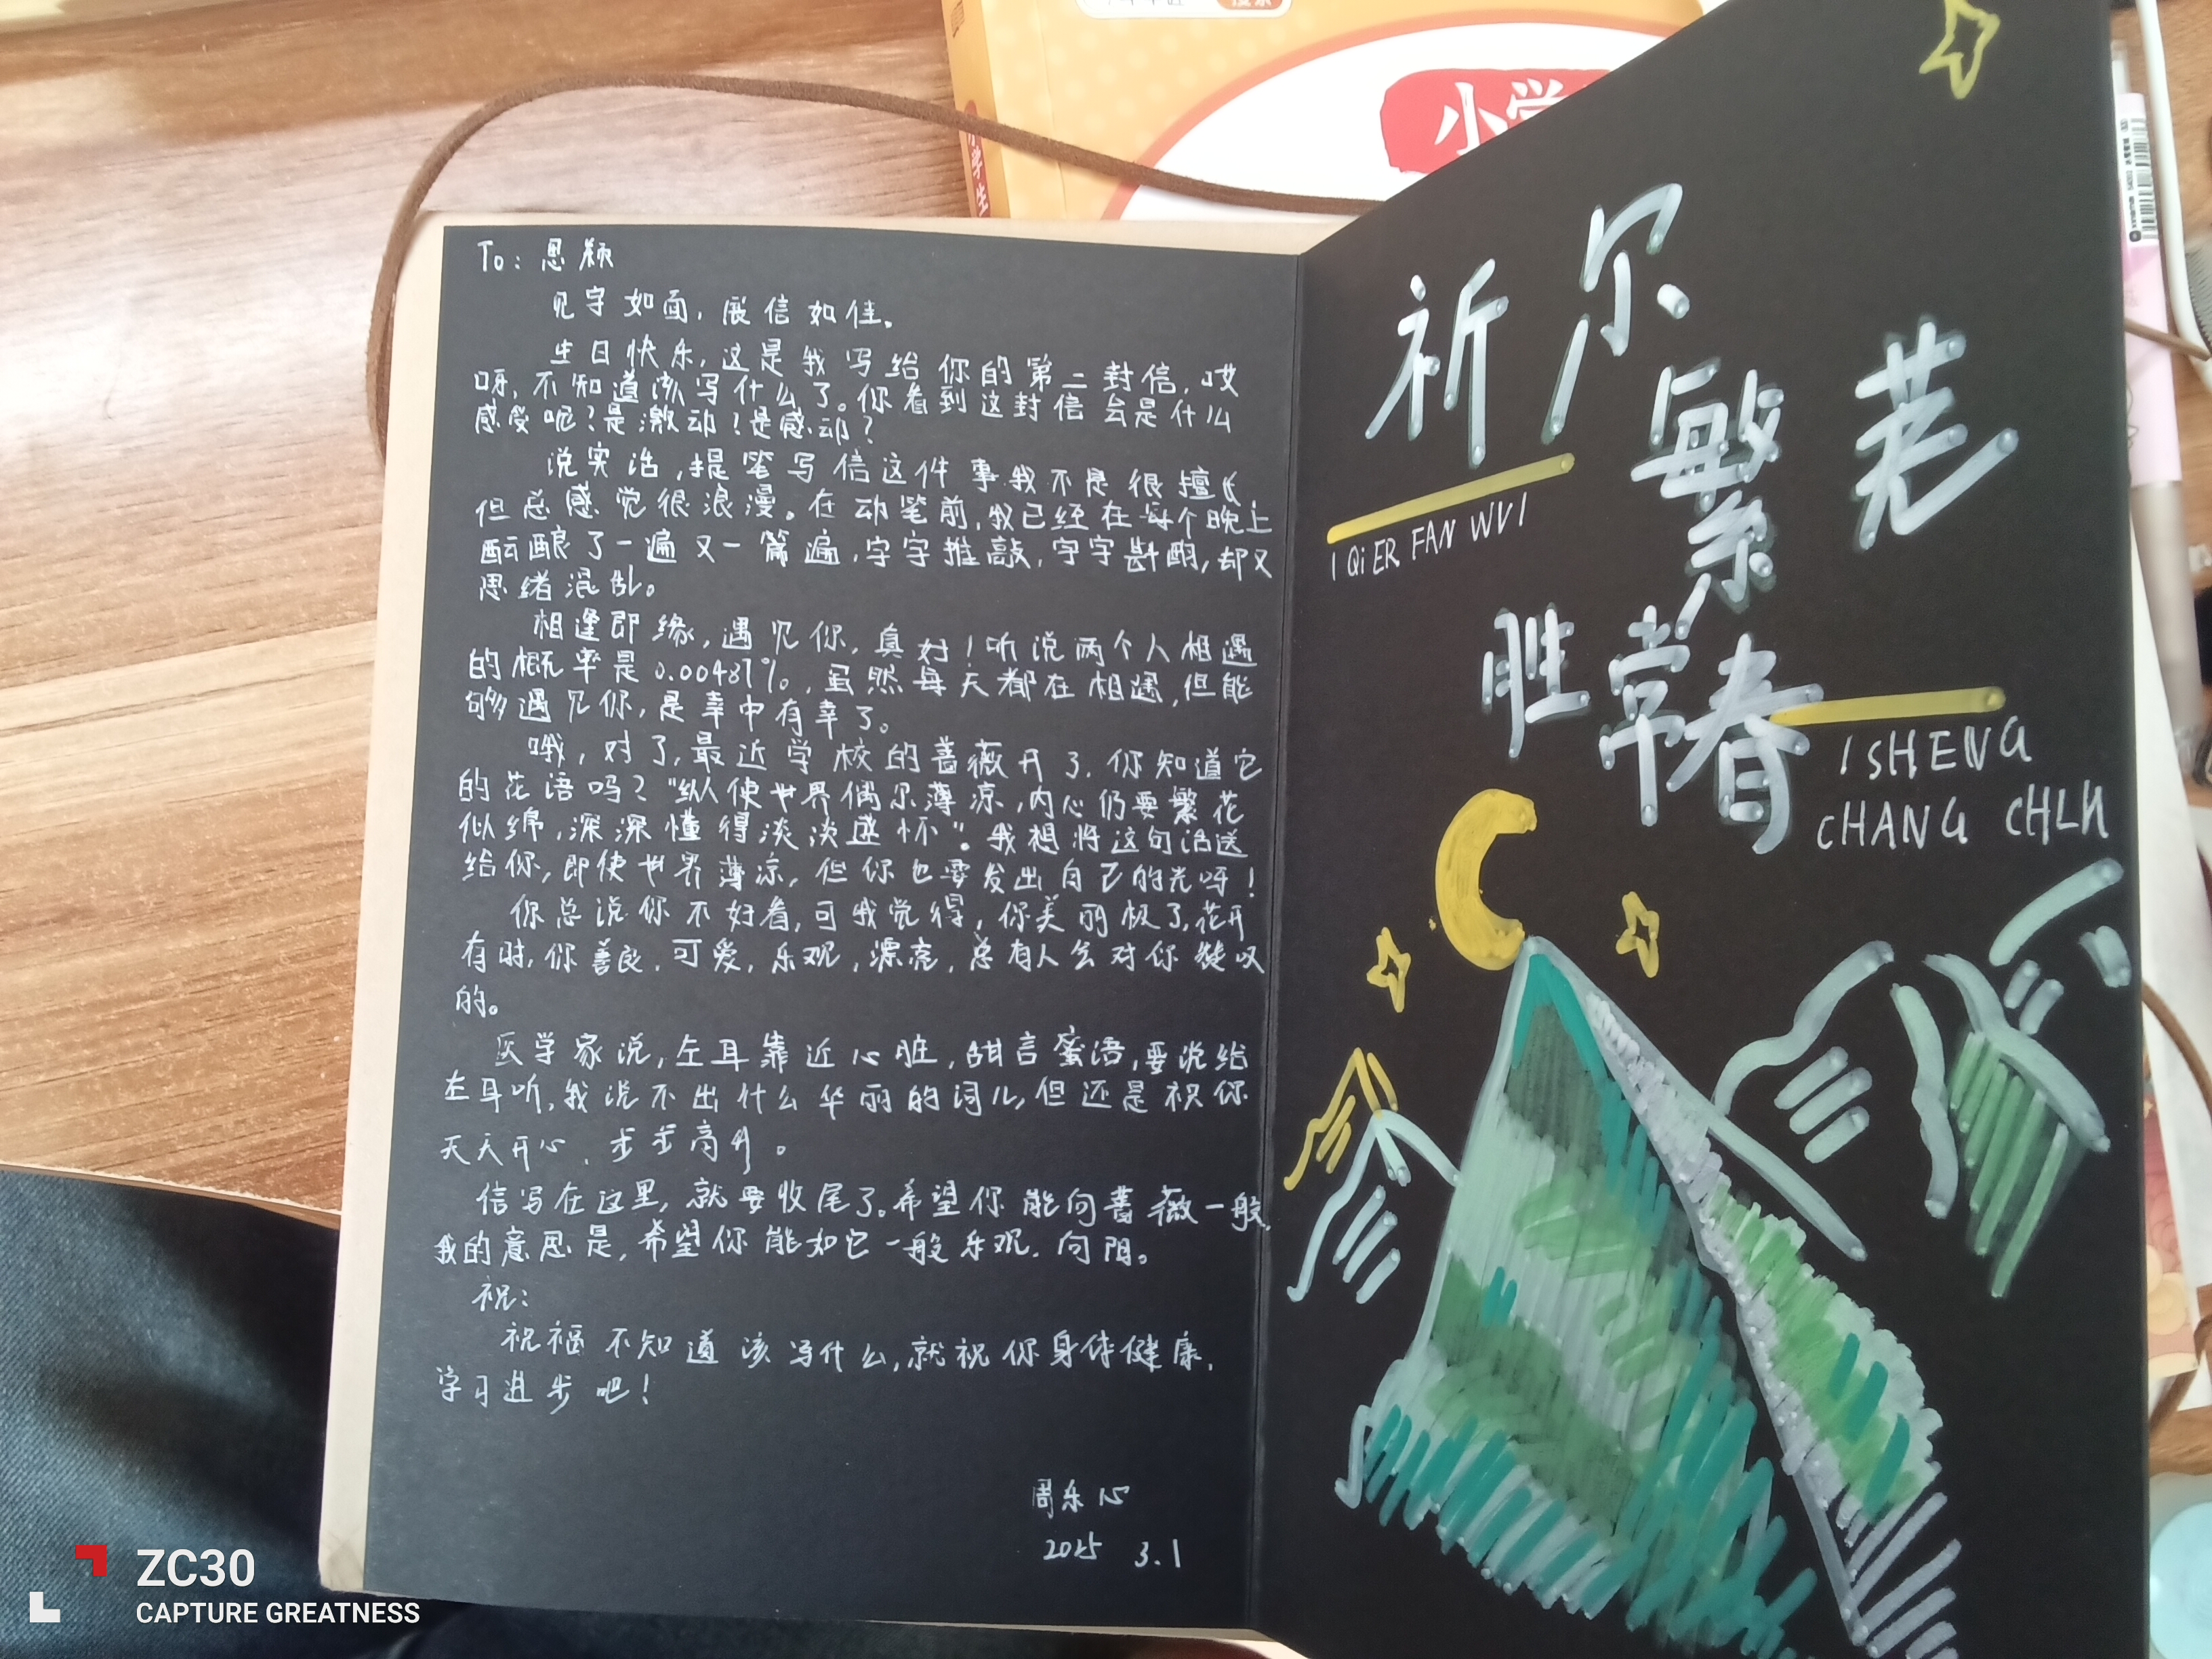 小学
小学生
To：思颖
见字如面，展信如佳。
生日快乐，这是我写给你的第二封信，哎
呀，不知道该写什么了。你看到这封信会是什么
感受呢？是激动？是感动？
说实话，提笔写信这件事我不是很擅长
但总感觉很浪漫。在动笔前，我已经在每个晚上
酝酿了一遍又一篇遍，字字推敲，字字斟酌，却又
思绪混乱。
相逢即缘，遇见你，真好！听说两个人相遇
的概率是0.00487%，虽然每天都在相遇，但能
够遇见你，是幸中有幸了。
哦，对了，最近学校的蔷薇开了，你知道它
的花语吗？“纵使世界偶尔薄凉，内心仍要繁花
似绵，深深懂得淡淡述怀”。我想将这句话送
给你，即使世界薄凉，但你也要发出自己的光呀！
你总说你不好看，可我觉得，你美丽极了，花开
有时，你善良，可爱，乐观，漂亮，总有人会对你赞叹
的。
医学家说，左耳靠近心脏，甜言蜜语，要说给
左耳听，我说不出什么华丽的词儿，但还是祝你
天天开心，步步高升。
信写在这里，就要收尾了。希望你能向蔷薇一般，
我的意思是，希望你能如它一般乐观，向阳。
祝：
祝福不知道该写什么，就祝你身体健康，
学习进步吧！
周乐心
2025 3.1
祈尔
繁芜
I QiER FAN WUI
胜常春
ISHENG
CHANG CHUN
ZC30
CAPTURE GREATNESS